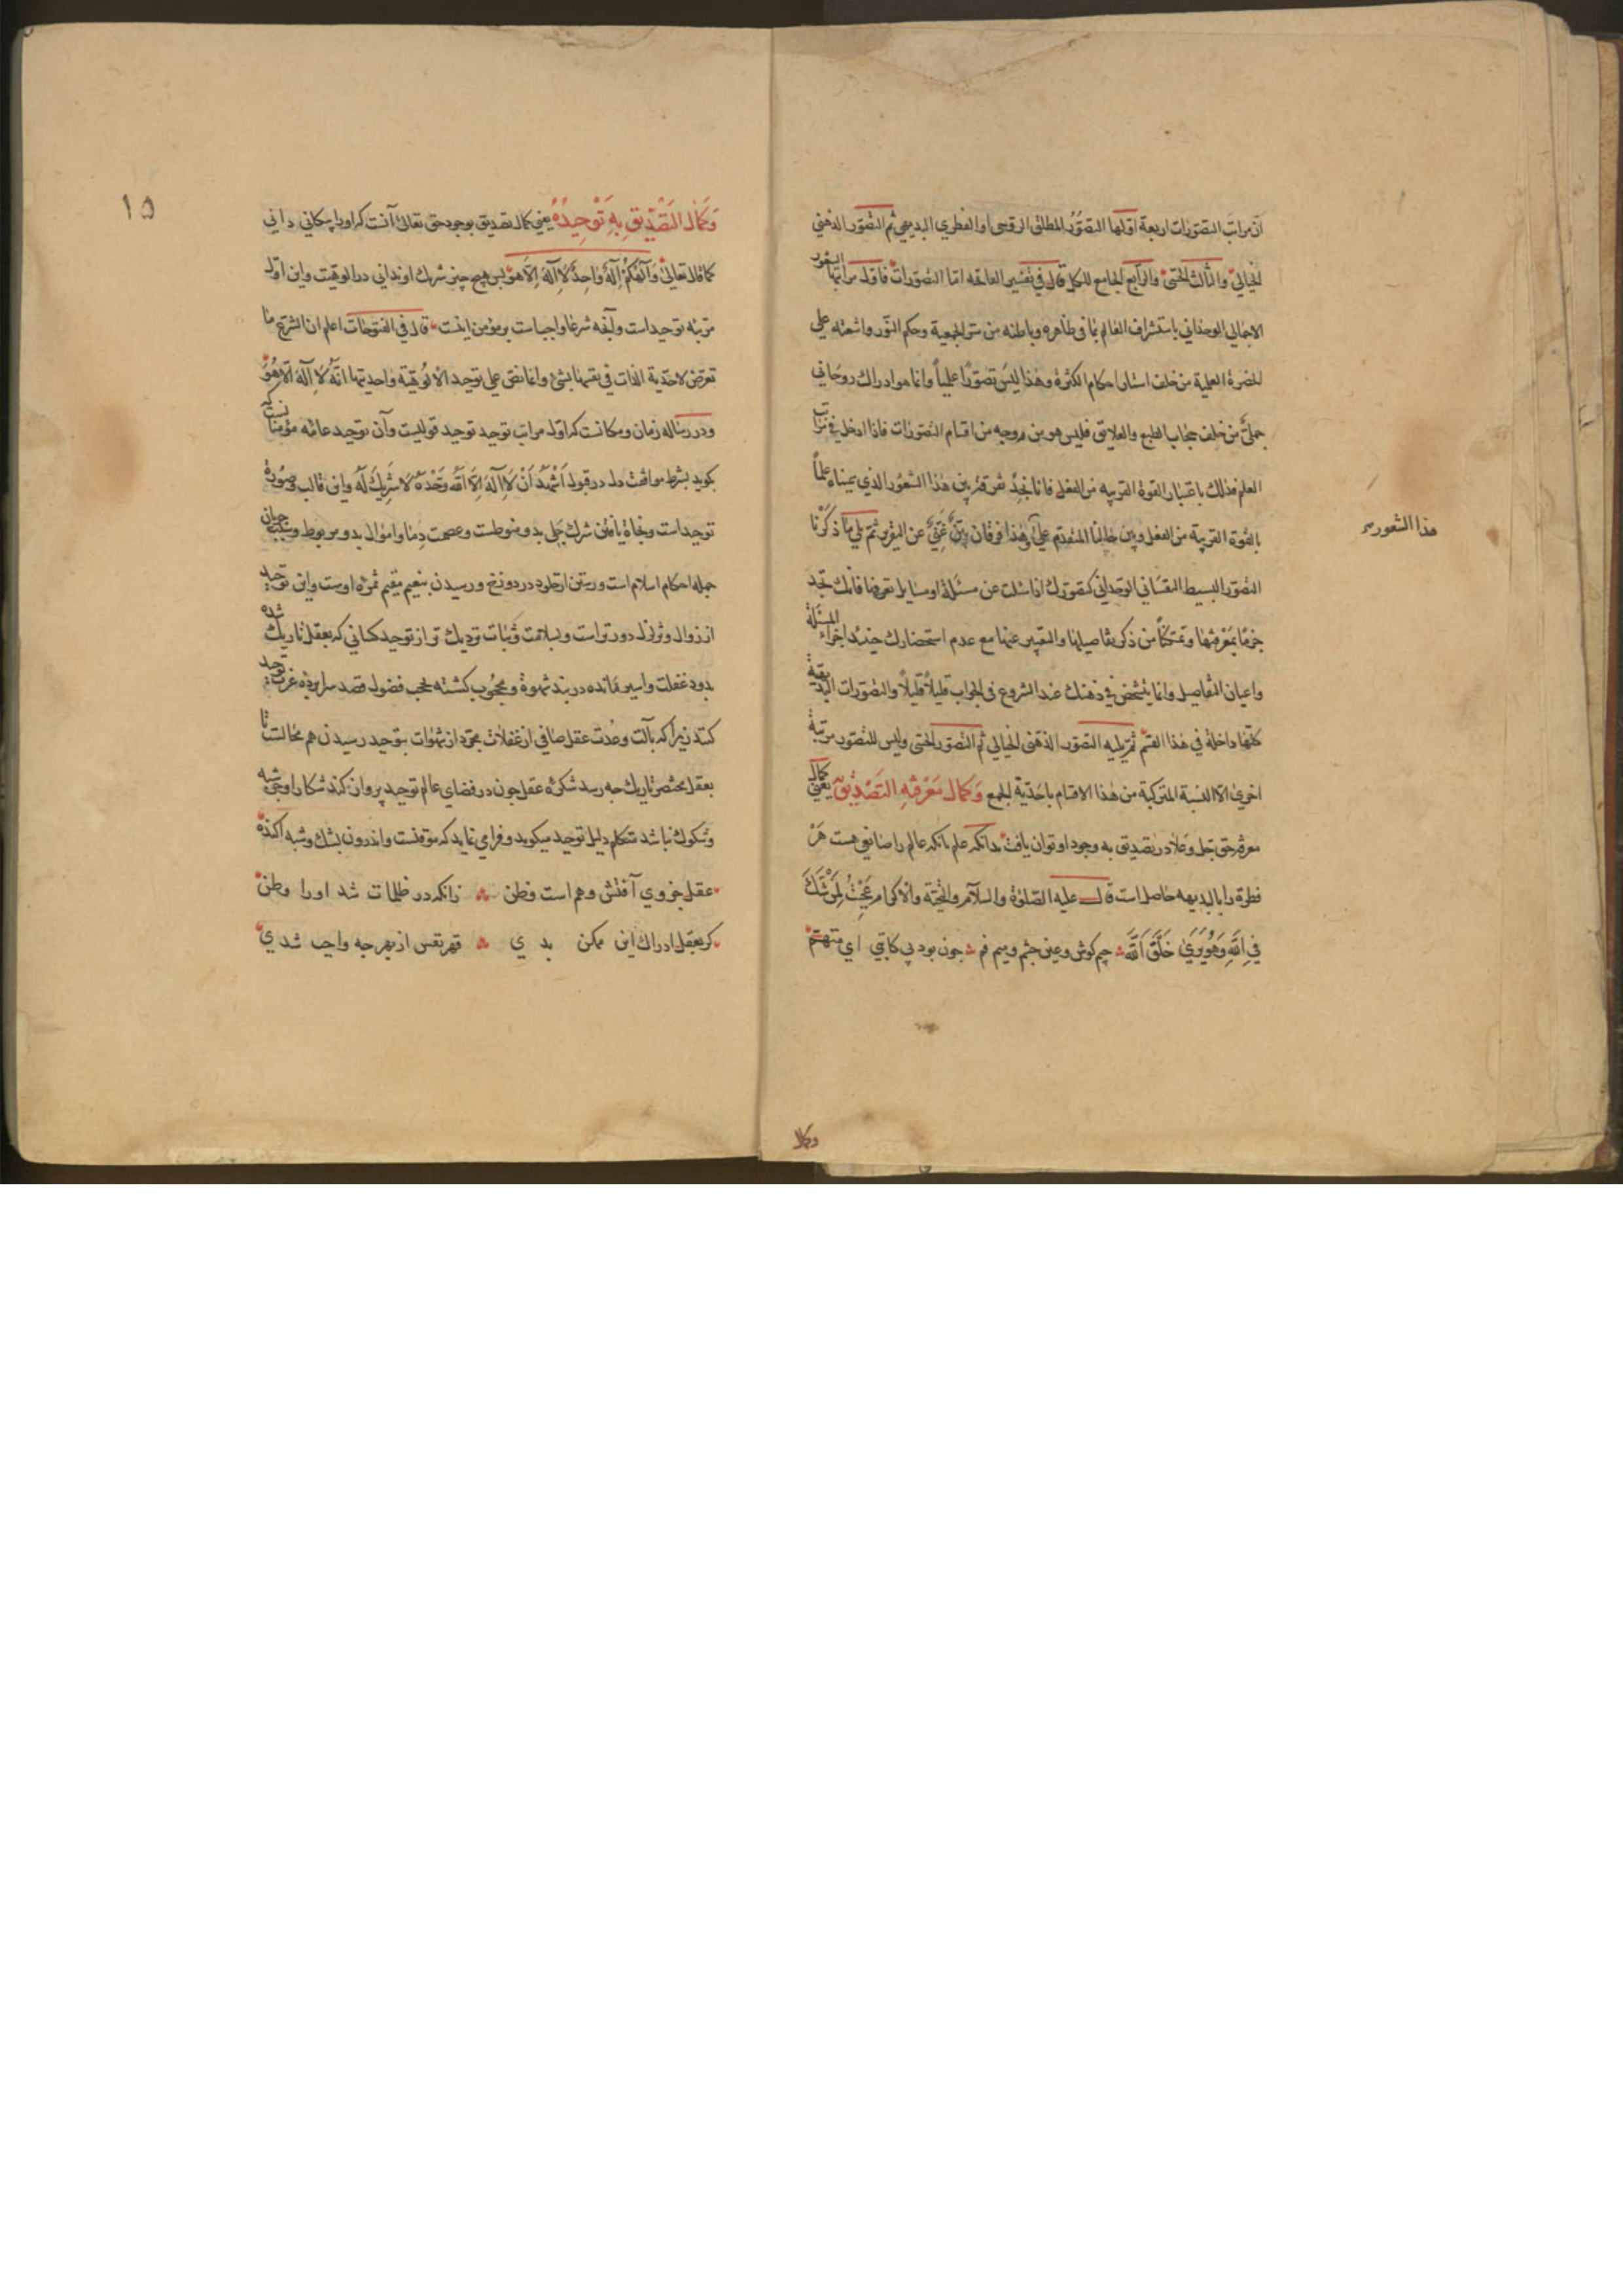 ان مراتب التصورات اربعة اولها التصور المطلق الروحی او الفطري البديهي ثم التصور الذهني
الخيالي والثالث الحسّی والرابع الجامع للكل قال في تفسير الفاتحه امّا التصورات فاول مراتبها الشعور
الاجمالي الوحداني باستشراف العالم بما في ظاهره وباطنه من سرّ الجمعية وحكم النور واشعته علی
الحضرة العلمية من خلف استار احكام الكثرة وهذا ليس تصوّراً علمياً وانما هو ادراك روحاني
جملیّ من خلف حجاب الطبع والعلايق فليس هو من وجه من اقسام التصورات فاذا ادخل في مراتب
العلم فذلك باعتبار القوة القريبه من الفعل فانا نجد تفرقة بين هذا الشعور الذي سميناه علماً
بالقوة القريبة من الفعل وبين حالنا المتقدم علی هذا فرقان بيّن غنيّ عن التقرير ثم يلي ما ذكرنا
هذا الشعور
التصور البسيط النفساني الوحداني كتصورك اذا سئلت عن مسئلة او مسايل تعرفها فانك تجد
جزمًا بمعرفتها وتمكناً من ذكر تفاصيلها والتعبير عنها مع عدم استحضارك حينئذ اجزاء المسئلة
واعيان التفاصيل وانما يتشخص في ذهنك عند الشروع في الجواب قليلاً قليلاً والتصورات البديهية
كلها داخلة في هذا القسم ثم يليه التصور الذهنی الخيالي ثم التصور الحسّی وليس للتصور مرتبة
اخری الا النسبة المتركبة من هذا الاقسام باحدية الجمع وَكمال مَعْرِفَتِهِ التَصْدِيق يعنی كمال
معرفة حق جل وعلا در تصديق به وجود او توان يافت بدانكه علم بانكه عالم را صانعی هست هر
فطرة را بالبديهه حاصل است قال عليه الصلوة والسلام والتحية والاكرام عَجِبْتُ لِمَنْ شَكَّ
فِي اللهِ وَهُوَ يَرَی خَلْقَ اللهِ جيم كوش وعين چشم وميم فم چون بود بي كاتبي اي متهم
وكمال
١٥
وَكَمَالُ التَصْدِيقِ بِهِ تَوْحِيدُهُ يعني كمال تصديق بوجود حق تعالی آنست كه او را بيكانكي داني
كما قال تعالی وَالهكُمْ اِلهٌ وَاحِدٌ لا اِلهَ اِلاّ هُوَ پس هيچ چيز شريك او نداني در الوهيت واين اول
مرتبه توحيد است وآنچه شرعا واجب است بر مؤمن اينست قال في الفتوحات اعلم ان الشرع ما
تعرض لاحدية الذات في نفسها بشئ وانما نص علی توحيد الالوهية واحديتها انّه لا اله الا هو
ودر رساله زمان ومكانست كه اول مراتب توحيد توحيد قوليست وآن توحيد عامّه مؤمنانست كه
بكويد بشرط موافقت دل در قول اَشْهَدُ اَنْ لا اِلهَ اِلاّ اللهُ وَحْدَهُ لا شَرِيكَ لَهُ واين قالب وصورة
توحيد است ونجاة يافتن شرك جلی بدو منوطست وعصمت دما واموال بدو مربوط
جمله احكام اسلام است ورستن از خلود در دوزخ ورسيدن بنعيم مقيم ثمرهٔ اوست واين توحيد
از زوال وتزلزل دورتر است وبسلامت وثبات نزديك تر از توحيد كسانی كه بعقل تاريك شده
بدود غفلت واسير مانده در بند شهوة ومحجوب كشته بحجب فضول قصد سراپرده عزت توحيد
كنند زيرا كه بآلت وعدت عقل صافي از غفلات مجرّد از شهوات بتوحيد رسيدن هم محالست تا
بعقل مختصر تاريك چه رسد شكرهٔ عقل چون در فضای عالم توحيد پرواز كند شكار او جز شبه
وشكوك نباشد متكلم دليل توحيد ميكويد وفرا می نمايد كه موقنست واندرون بشك وشبه آكنده
عقل جزوي آفتش وهم است وظن زانكه در ظلمات شد او را وطن
كر بعقل ادراك اين ممكن بدي قهر نفس از بهر چه واجب شدي